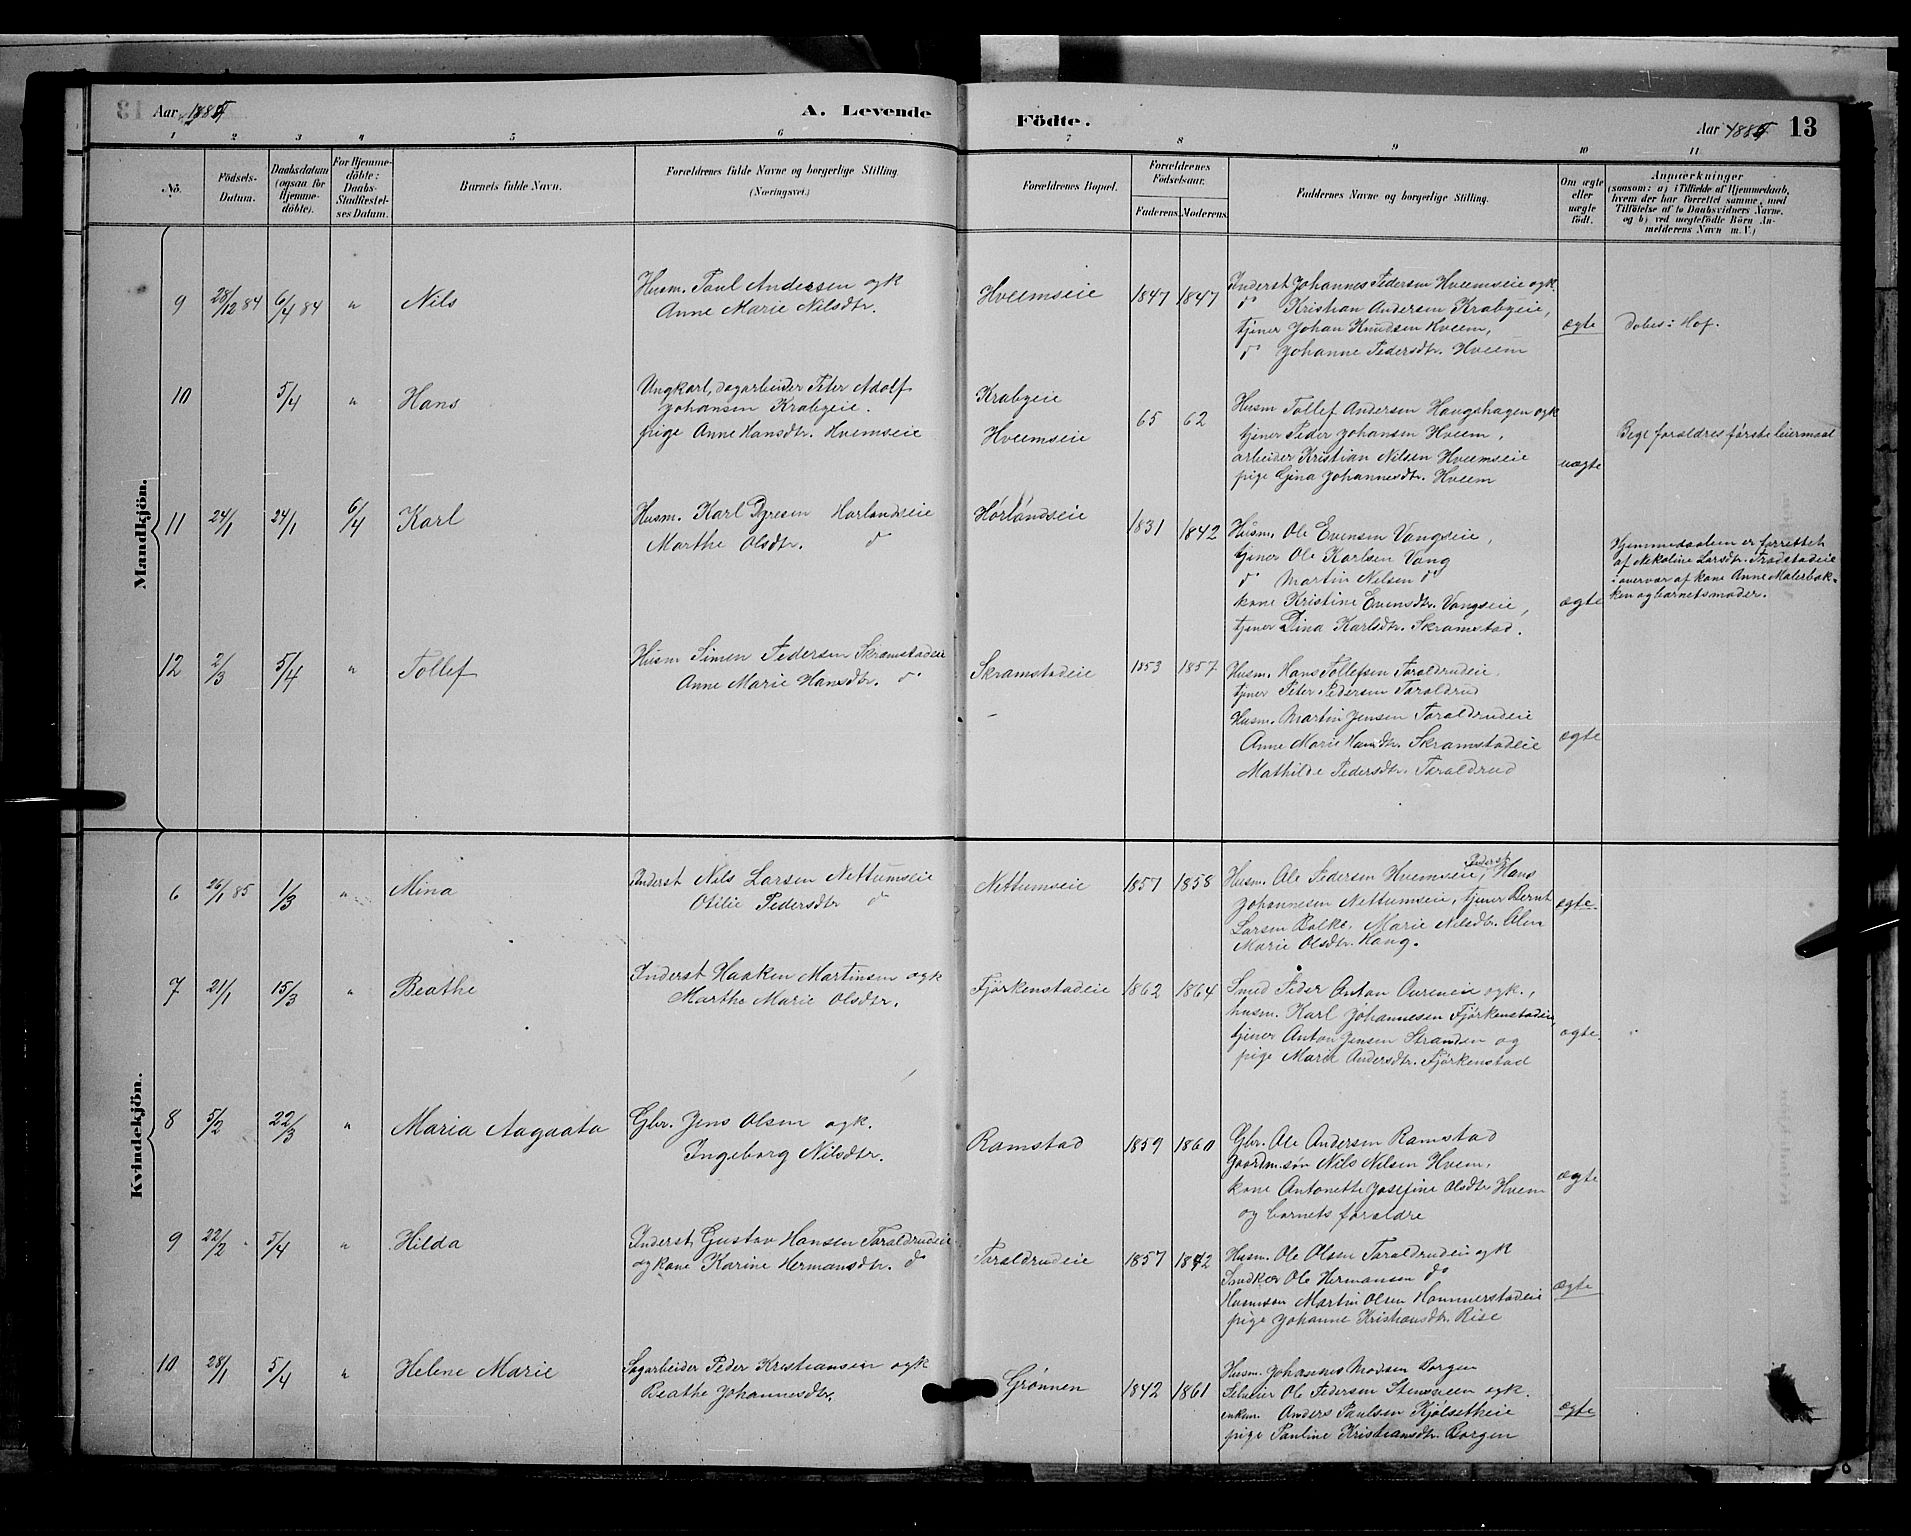 Aar 1885
A. Levende
Födte.
Aar 1885
13
1 2 3 4 5 6 7 8 9 10 11
No.
Födsels-
Datum.
Daabsdatum
(ogsaa for
Hjemme-
döbte).
For Hjemme-
döbte:
Daabs-
Stadfæstel-
ses Datum.
Barnets fulde Navn.
Forældrenes fulde Navne og borgerlige Stilling.
(Næringsvei.)
Forældrenes Bopæl.
Forældrenes
Födselsaar.
Faderens.
Moderens.
Faddernes Navne og borgerlige Stilling.
Om ægte
eller
uægte
födt.
Anmærkninger
(saasom: a) i Tilfælde af Hjemmedaab,
hvem der har forrettet samme, med
Tilföielse af to Daabsvidners Navne,
og b) ved uægtefödte Börn An-
melderens Navn m. V.)
Mandkjön.
9
28/12 84
6/4 84
"
Nils
Husm. Paul Andersen ogk
Anne Marie Nilsdtr.
Hveemseie
1847
1847
Inderst Johannes Pedersen Hveemseie ogk
do Kristian Andersen Krabyeie,
tjener Johan Knudsen Hveem,
do Johanne Pedersdtr. Hveem
ægte
Døbt i Hof.
10
5/4
"
Hans
Ungkarl, dagarbeider Peter Adolf
Johansen Krabyeie.
pige Anne Hansdtr. Hvemseie
Krabyeie
Hveemseie
65
62
Husm Tollef Andersen Haugshagen ogk
tjener Peder Johansen Hveem,
arbeider Kristian Nilsen Hveemseie
pige Gina Johannesdtr. Hveem
uægte
Begge forældres første leiermaal
11
24/1
24/1
6/4
Karl
Husm. Karl Dyresen Horlandseie
Marthe Olsdtr. do
Hørlandseie
1831
1842
Husm. Ole Evensen Vangseie,
tjener Ole Karlsen Vang
do Martin Nilsen do
kone Kristine Evensdtr. Vangseie,
tjener Dina Karlsdtr. Skramstad.
ægte
Hjemmedaaben er forrettet
af Nikoline Larsdtr.
i overvær af kone Anne Malerbak-
ken og barnets moder.
12
2/3
5/4
"
Tollef
Husm Simen Pedersen Skramstadeie
Anne Marie Hansdtr. do
Skramstadeie
1853
1857
Husm. Hans Tollefsen Taraldrudeie,
tjener Peter Pedersen Taraldrud
Husm. Martin Jensen Taraldrudeie
Anne Marie Hansdtr. Skramstadeie
Mathilde Pedersdtr. Taraldrud
ægte
Kvindekjön.
6
26/1 85
1/3
"
Mina
Inderst Nils Larsen Nettumseie
Otilie Pedersdtr do
Nettumseie
1857
1858
Husm. Ole Pedersen Hvemseie, Inderst Hans
Johannesen Nettumseie, tjener Bernt
Larsen Balke, Marie Nilsdtr. Olen
Marie Olsdtr. Haug.
ægte.
7
21/1
15/3
"
Beathe
Inderst Haaken Martinsen ogk
Marthe Marie Olsdtr.
Fjørkenstadeie
1862
1864
Smed Peder Anton Aureneie ogk.,
husm. Karl Johannesen Fjørkenstadeie,
tjener Anton Jensen Stranden og
pige Marie Andersdtr. Fjørkenstad
ægte.
8
5/2
22/3
"
Maria Aagaata
Gbr. Jens Olsen ogk.
Ingeborg Nilsdtr.
Ramstad
1859
1860
Gbr. Ole Andersen Ramstad
gaardm.søn Nils Nilsen Hvem,
kone Antonette Josefine Olsdtr Hvem
og barnets foraldre
ægte
9
22/2
5/4
"
Hilda
Inderst Gustav Hansen Taraldrudeie
og kone Karine Hermansdtr. do
Taraldrudeie
1857
1842
Husm. Ole Olsen Taraldrudeie ogk
Snedker Ole Hermansen do
Husmsøn Martin Olsen Hammerstadeie
pige Johanne Kristiansdtr. Rise
ægte
10
28/1
5/4
"
Helene Marie
Sagarbeider Peder Kristiansen ogk
Beathe Johannesdtr.
Grønnen
1842
1861
Husm. Johannes Madsen Borgen
Selveier Ole Pedersen Stensveen ogk.
enkem. Anders Paulsen Kjølsetheie
pige Pauline Kristiansdtr. Borgen
ægte